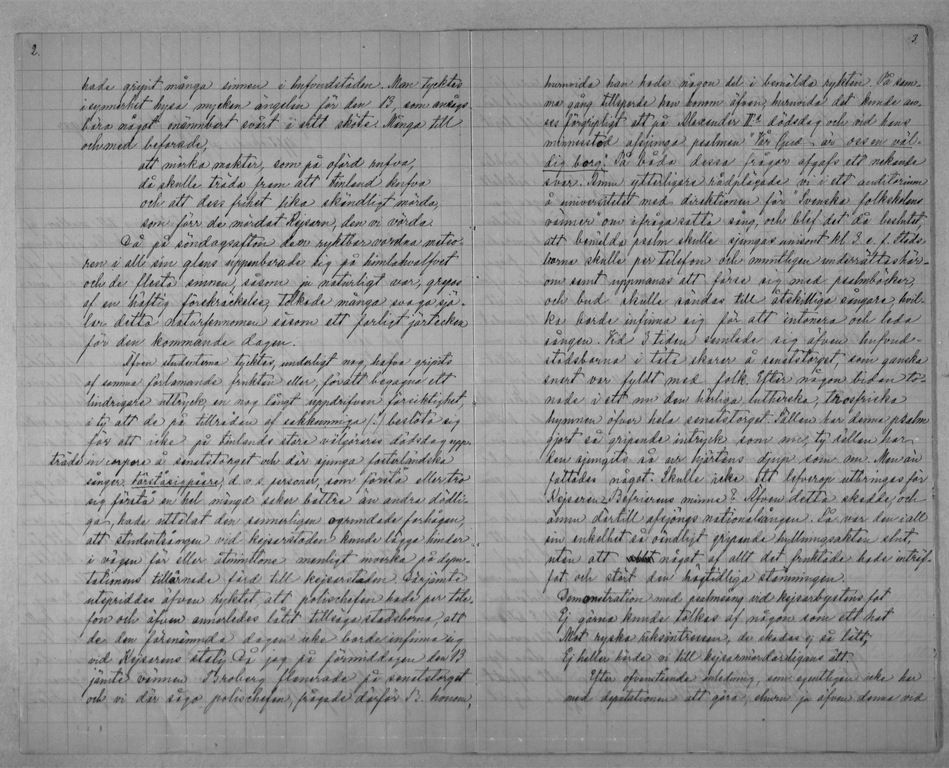 2.
hade gripit många sinnen i hufvudstaden. Man tycktes
i synnerhet hysa mycken angelen för den 13, som ansågs
bära något oännbart svårt i sitt sköte. Många till
och med befarade,
att mörka makter, som på ofärd rufva,
då skulle träda fram att Finland kufva
och att dess frihet lika skändligt mörda,
som förr de mördat Kejsarn, den vi vörda.
Då på söndagsafton den ryktbar vordna meteo-
ren i all sin glans uppenbarade sig på himlahvalfvet
och de flesta sinnen, såsom ju naturligt var, grepos
af en häftig förskräckelse, tolkade många svaga sjä-
lar detta naturfenomen såsom ett farligt järtecken
för den kommande dagen.
Äfven studenterna tycktes, underligt nog, hafva gripits
af samma förlamande fruktan eller, för att begagna ett
lindrigare uttryck, en nog långt uppdrifven försiktighet
i ty att de på tillrådan af sakkunniga (!) beslöto sig
för att icke på Finlands store välgörares dödsdag upp-
träda in corpore å senatstorget och där sjunga fosterländska
sånger. Förståsigpåare, d. v. s. personer, som förstå eller tro
sig förstå en hel mängd saker bättre än andre dödli-
ga, hade uttalat den sannerligen ogrundade farhågan,
att studentsången vid kejsarstoden kunde lägga hinder
i vägen för eller åtminstone menligt inverka på depu-
tationens tillärnade färd till kejsarstaden. Därjämte
utspriddes äfven ryktet, att polischefen hade per tele-
fon och äfven annorledes låtit tillsäga stadsborna, att
de den förenämnda dagen icke borde infinna sig
vid Kejsarens staty. Då jag på förmiddagen den 13
jämte vännen Broberg flanerade på senatstorget
och vi där sågo polischefen, frågade därför B. honom,
3.
huruvida han hade någon del i bemälda rykten. På sam-
ma gång tillsporde han honom äfven, huruvida det kunde an-
ses förgripligt att på Alexander II:s dödsdag och vid hans
minnesstod afsjunga psalmen "Vår Gud är oss en väl-
dig borg". På båda dessa frågor afgafs ett nekande
svar. Ännu ytterligare rådplägade vi i ett auditorium
å universitetet med direktionen för "Svenska folkskolans
vänner" om ifrågasatta sång, och blef det då beslutet,
att bemälda psalm skulle sjungas unisont kl. 3 e. f. Stads
borna skulle per telefon och muntligen underrättas här-
om samt uppmanas att förse sig med psalmböcker,
och bud skulle sändas till åtskilliga sångare, hvil-
ka borde infinna sig för att intonera och leda
sången. Vid 3 tiden samlade sig äfven hufvud-
stadsborna i täta skaror å senatstorget, som ganska
snart var fyldt med folk. Efter någon bidan to-
nade i ett nu den härliga lutherska, trosfriska
hymnen öfver hela senatstorget. Sällan har denna psalm
gjort så gripande intryck som nu, ty sällan har
den sjungits så ur hjärtans djup som nu. Men än
fattades något. Skulle icke ett lefverop utbringas för
Kejsaren-Befriarens minne? Äfven detta skedde, och
ännu därtill afsjöngs nationalsången. Så var den i all
sin enkelhet så oändligt gripande hyllningsakten slut,
utan att något af allt det fruktade hade inträf-
fat och stört den högtidliga stämningen.
Demonstration med psalmsång vid kejsarbystens fot
Ej gärna kunde tolkas af någon som ett hot
Mot ryska riksintressen, de skadas ej så lätt,
Ej heller hörde vi till kejsarmördarligans ätt.
Efter ofvanstående inledning, som egentligen icke har
med deputationen att göra, ehuru ju äfven denna vid